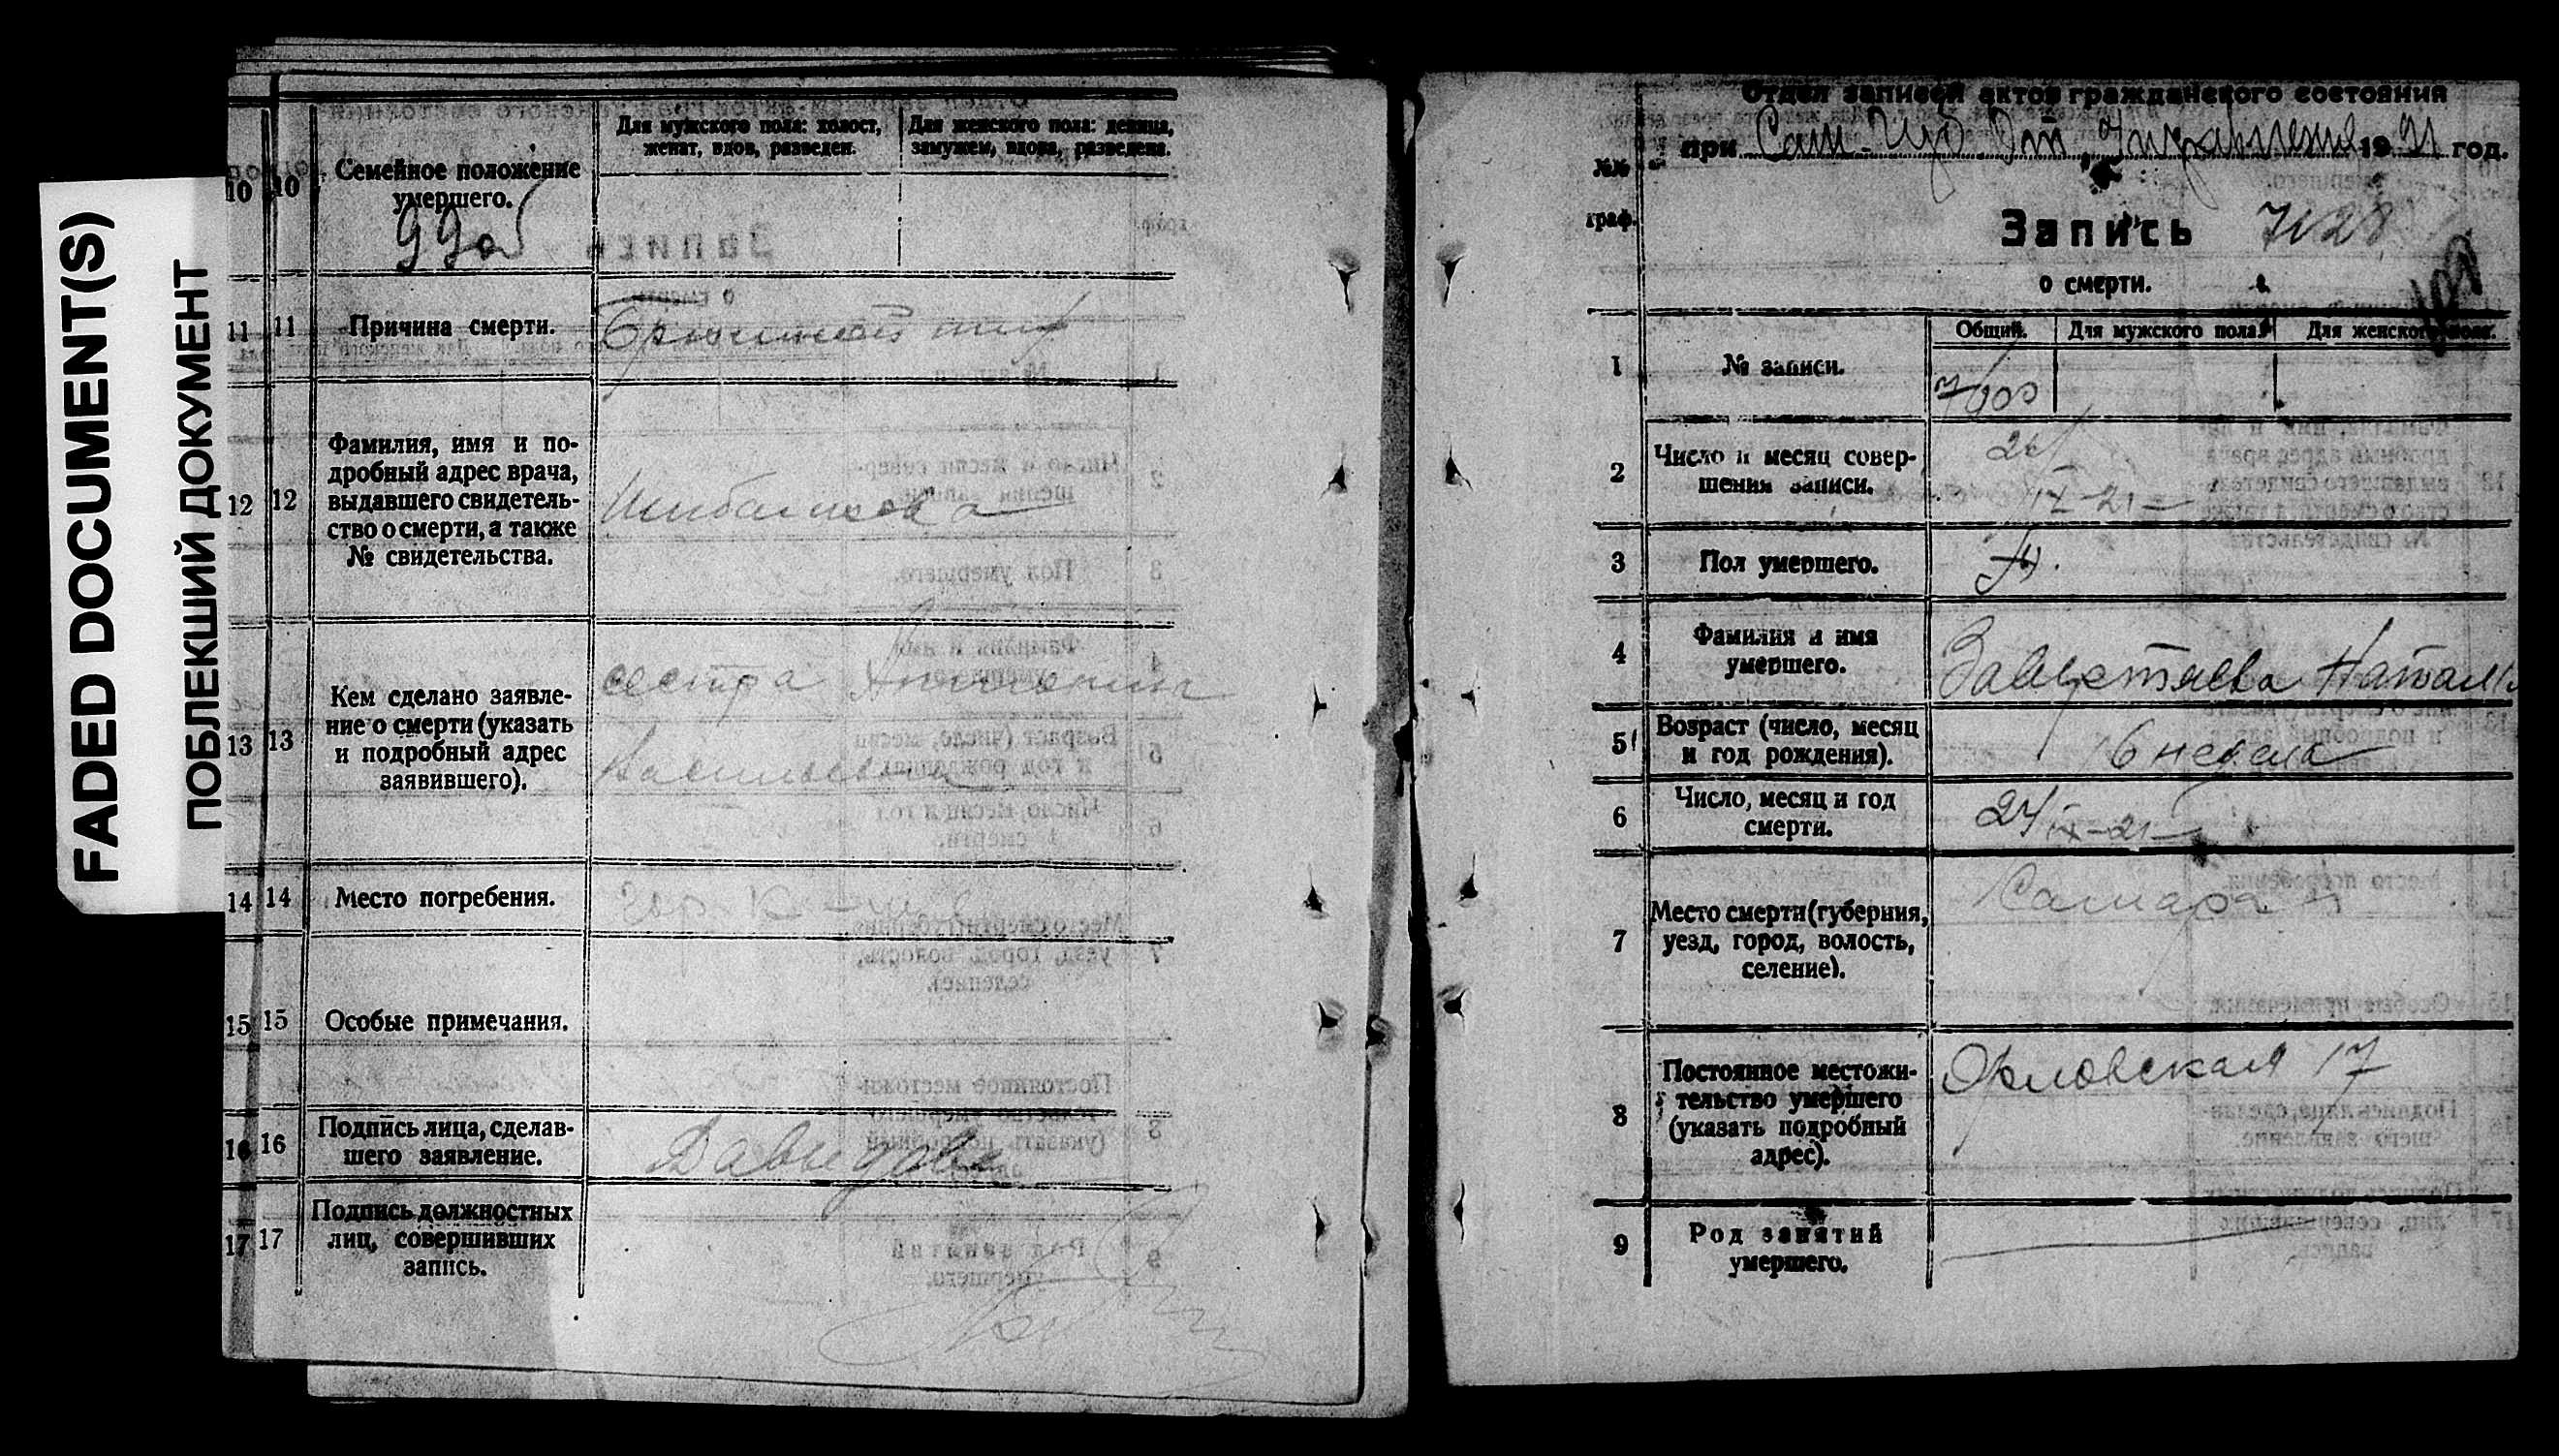 FADED DOCUMENT(S)
ПОБЛЕКШИЙ ДОКУМЕНТ
10 10 Семейное положение
умершего.
Для мужского пола: холост,
женат, вдов, разведен.
Для женского пола: девица,
замужем, вдова, разведена.
990б
11 11 Причина смерти.
Брюшной тиф
12 12 Фамилия, имя и по-
дробный адрес врача,
выдавшего свидетель-
ство о смерти, а также
№ свидетельства.
13 13 Кем сделано заявле-
ние о смерти (указать
и подробный адрес
заявившего).
сестра
14 14 Место погребения.
гор. К-ще
15 15 Особые примечания.
16 16 Подпись лица, сделав-
шего заявление.
Давыдова
17 17 Подпись должностных
лиц, совершивших
запись.
Отдел записей актов гражданского состояния
при Сам. Губ. От. Управления 1921 год.
№№
граф.
Запись 7128
о смерти.
1 № записи.
Общий. Для мужского пола. Для женского пола.
2 Число и месяц совер-
шения записи.
IX-21
3 Пол умершего.
4 Фамилия и имя
умершего.
5 Возраст (число, месяц
и год рождения).
6 недель
6 Число, месяц и год
смерти.
24 IX-21
7 Место смерти (губерния,
уезд, город, волость,
селение).
Самара
8 Постоянное местожи-
тельство умершего
(указать подробный
адрес).
Орловская 17
9 Род занятий
умершего.